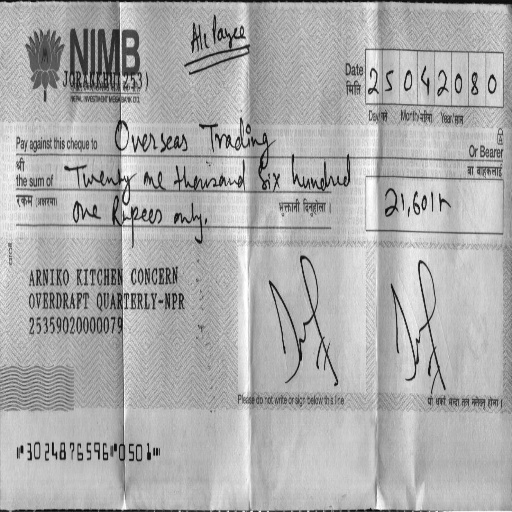 NIMB
NEPAL INVESTMENT MEGA BANK LTD.
A/c Payee
Date
मिति
25042080
Day/गते Month/महिना Year/साल
Pay against this cheque to Overseas Trading
श्री
Or Bearer
वा वाहकलाई
the sum of Twenty one thousand Six hundred
रकम (अक्षरमा) One Rupees only.
भुक्तानी दिनुहोला ।
21,601/-
ARNIKO KITCHEN CONCERN
OVERDRAFT QUARTERLY-NPR
25359020000079
Please do not write or sign below this line.
⑈3024876596⑈0501⑈